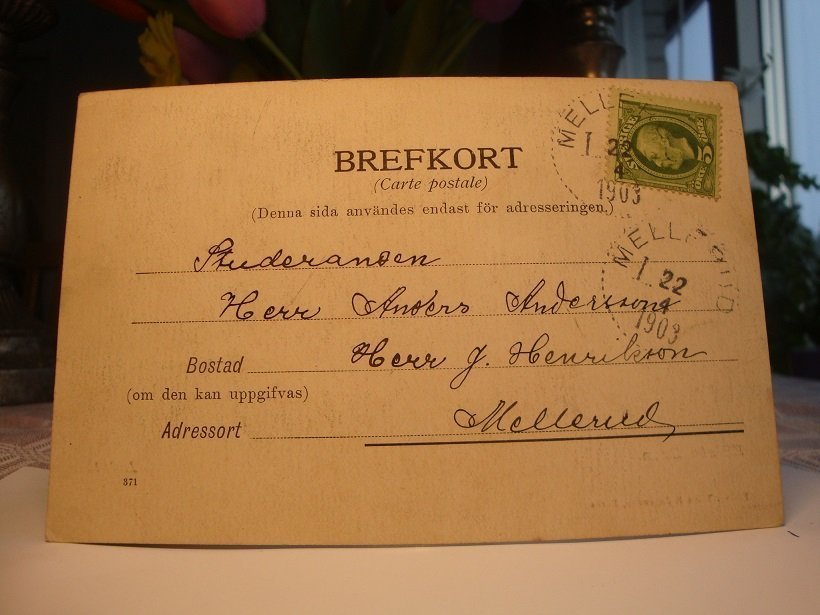 BREFKORT
(Carte postale)
(Denna sida användes endast för adresseringen.)
SVERIGE
5
MELLE
1 22
1903
MELLERUD
1 22
4
1903
Studeranden
Herr Anders Andersson
Bostad Herr J. Henrikson
(om den kan uppgifvas)
Adressort Mellerud
371